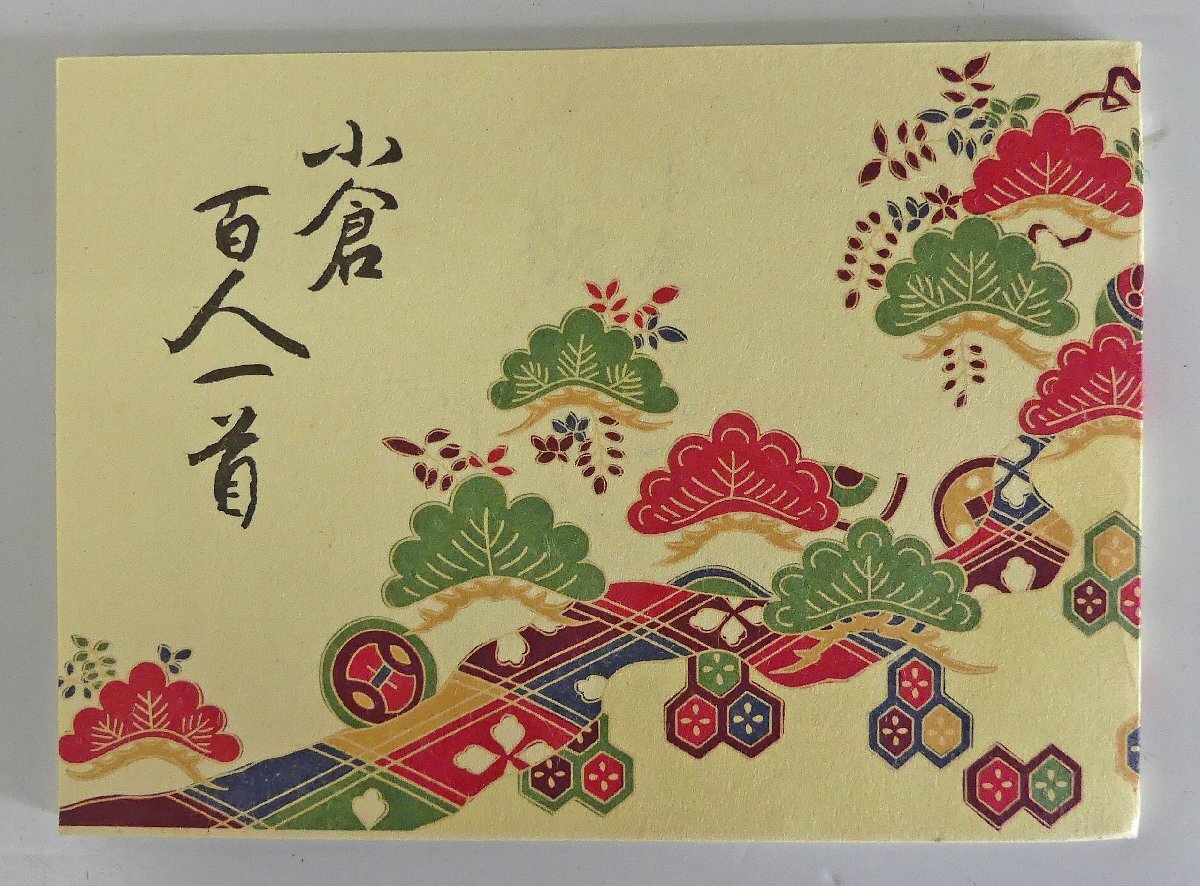 小倉
百人一首